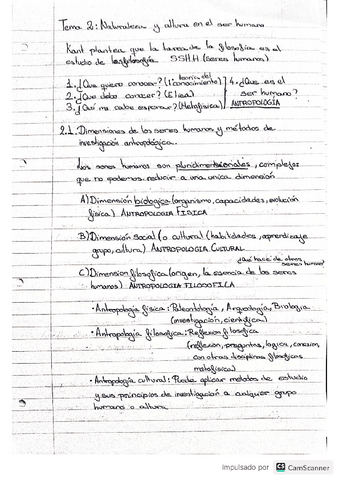 Tema 2: Naturaleza y cultura en el ser humano
Kant plantea que la tarea de la filosofía es el
estudio de SSHH (seres humanos)
1. ¿Que quiero conocer? (teoría del conocimiento)
2. ¿Que debo conocer? (Etica)
3. ¿Qué me cabe esperar? (Metafísica)
4. ¿Que es el
ser humano?
ANTROPOLOGÍA
2.1. Dimensiones de los seres humanos y métodos de
investigación antropológica.
Los seres humanos son pluridimensionales, complejos
que no podemos reducir a una unica dimensión
A) Dimensión biologica (organismo, capacidades, evolución
física) ANTROPOLOGIA FISICA
B) Dimensión social (o cultural) (habilidades, aprendizaje
grupo, cultura) ANTROPOLOGIA CULTURAL
¿Qué hace de otros
seres humanos?
C) Dimension filosofica (origen, la esencia de los seres
humanos) ANTROPOLOGIA FILOSOFICA
• Antropología física: Paleontología, Arqueología, Biologia
(investigación, cientifica)
• Antropología filosofica: Reflexion filosofica
(reflexion, preguntas, logica, conexion
con otras disciplinas filosoficas
metafisica)
• Antropología cultural: Puede aplicar metodos de estudio
y sus principios de investigación a cualquier grupo
humano o cultura
Impulsado por CS CamScanner